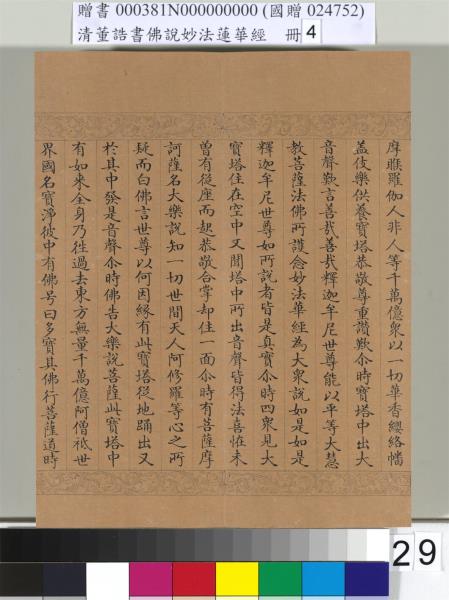 贈書 000381N000000000 (國贈 024752)
清董誥書佛說妙法蓮華經 冊 4
摩睺羅伽人非人等千萬億衆以一切華香纓絡幡
盖伎樂供養寶塔恭敬尊重讚歎尒時寶塔中出大
音聲歎言善㢤善㢤釋迦牟尼世尊能以平等大慧
教菩薩法佛所護念妙法華經為大衆說如是如是
釋迦牟尼世尊如所說者皆是真實尒時四衆見大
寶塔住在空中又聞塔中所出音聲皆得法喜恠未
曾有從座而起恭敬合掌却住一面尒時有菩薩摩
訶薩名大樂說知一切世間天人阿修羅等心之所
疑而白佛言世尊以何因緣有此寶塔從地踊出又
於其中發是音聲尒時佛告大樂說菩薩此寶塔中
有如来全身乃徃過去東方無量千萬億阿僧祇世
界國名寶淨彼中有佛号曰多寶其佛行菩薩道時
29